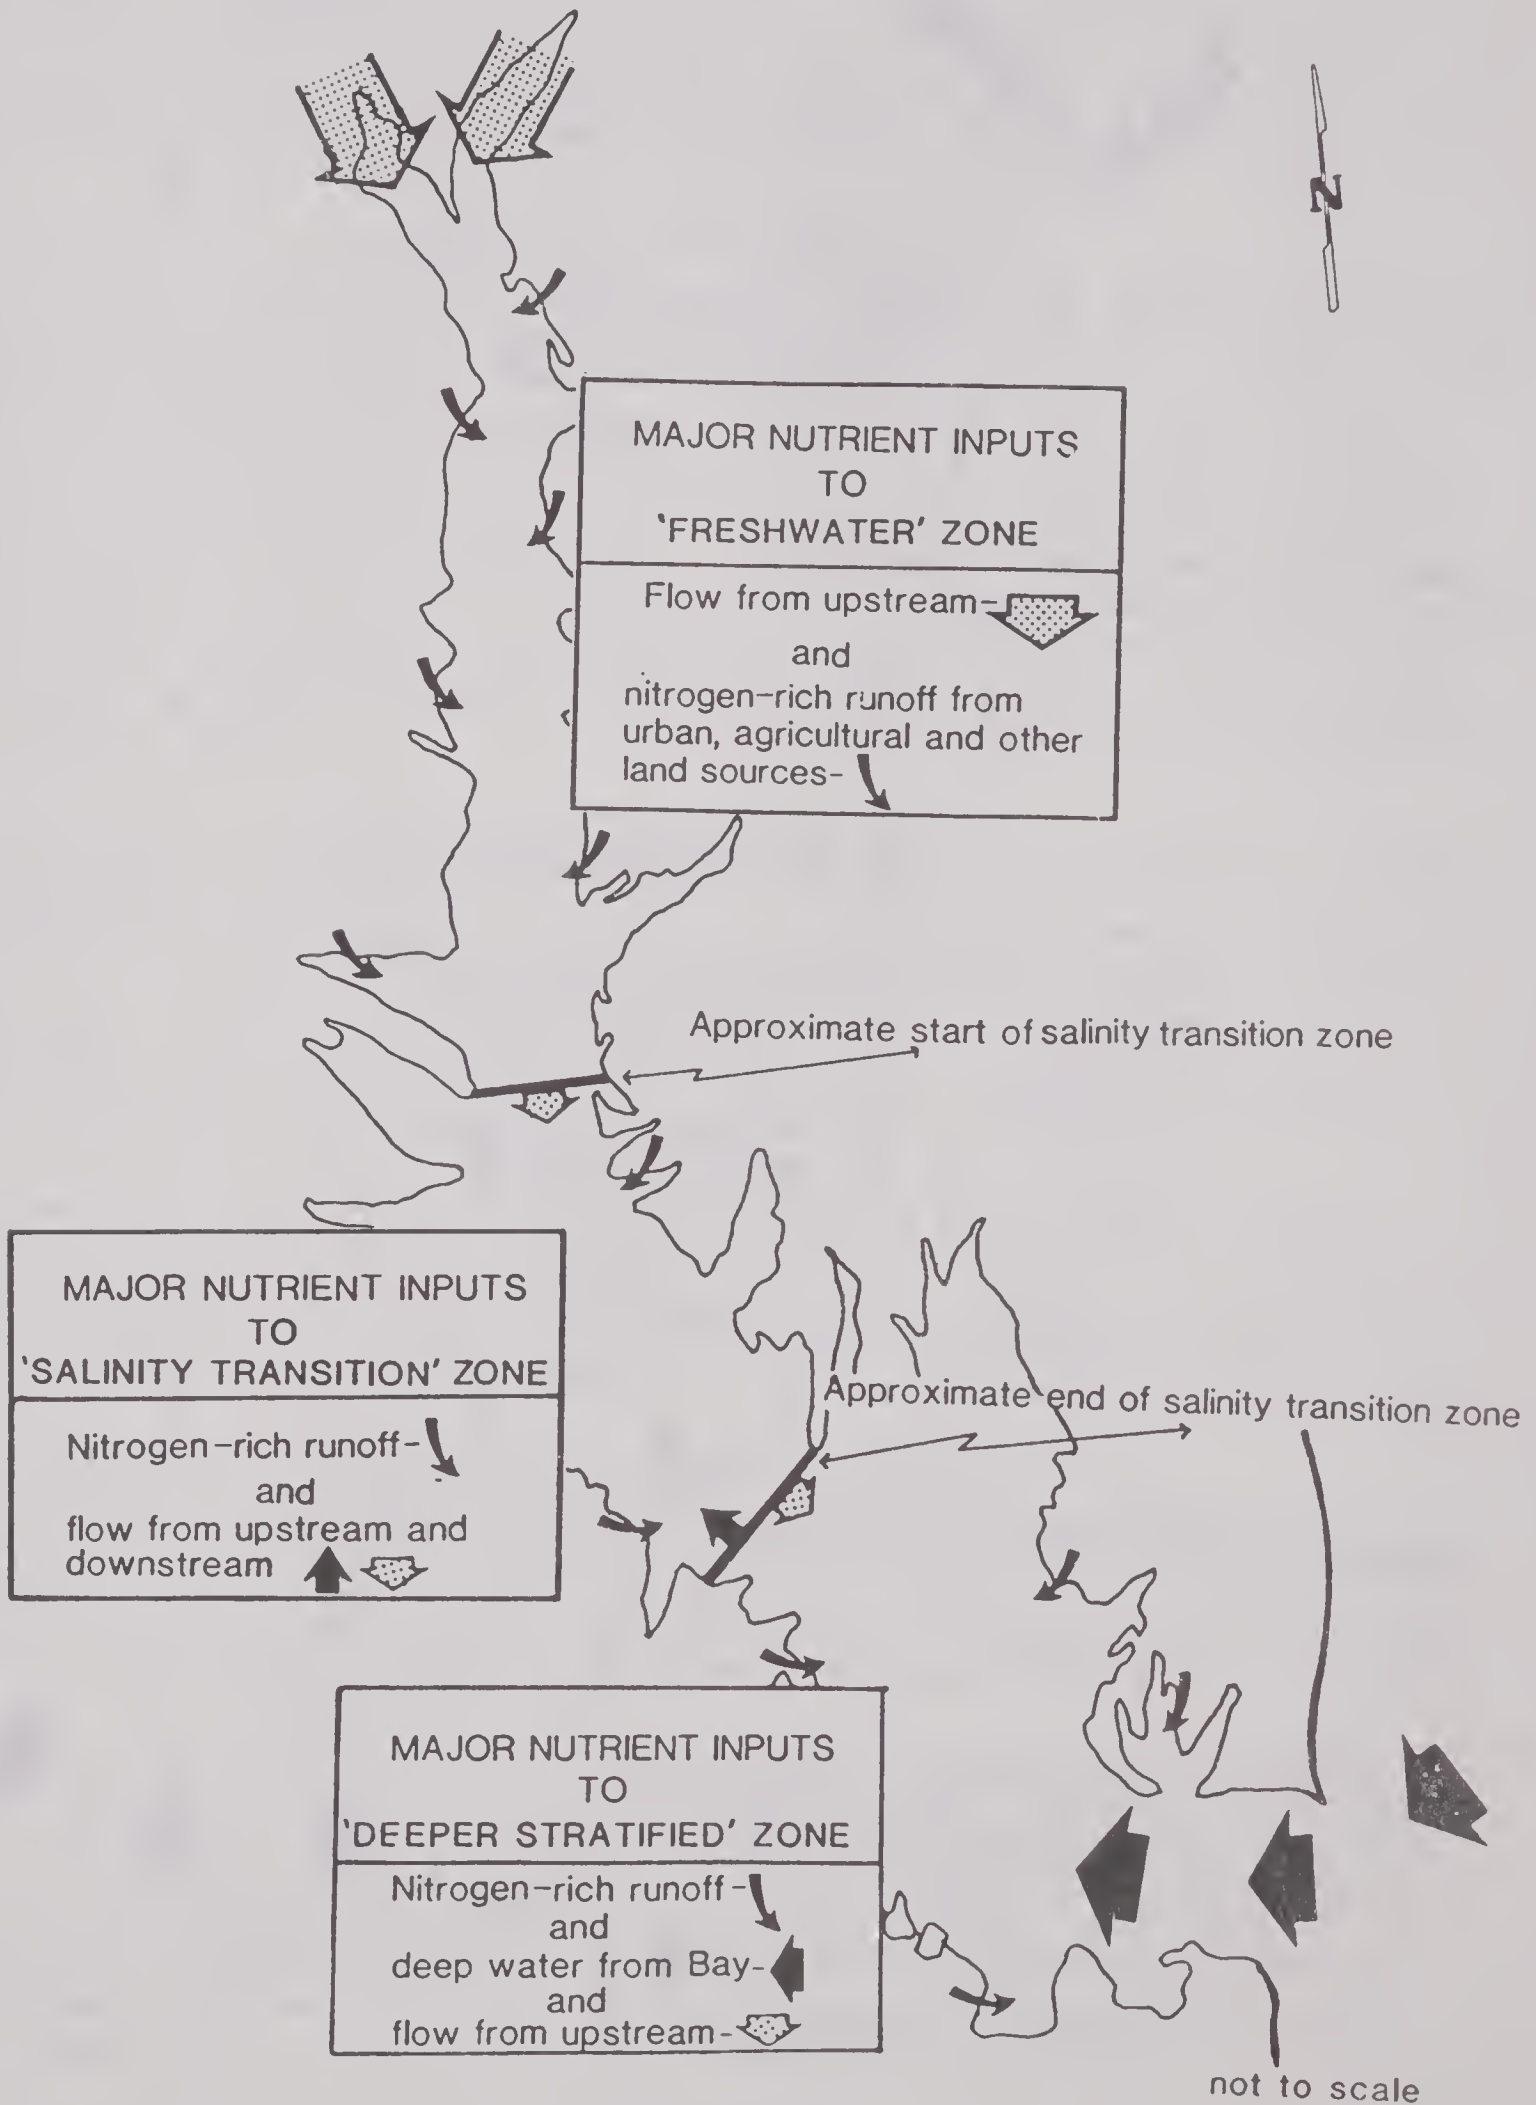 N
MAJOR NUTRIENT INPUTS
TO
'FRESHWATER' ZONE
Flow from upstream-
and
nitrogen-rich runoff from
urban, agricultural and other
land sources-
Approximate start of salinity transition zone
MAJOR NUTRIENT INPUTS
TO
'SALINITY TRANSITION' ZONE
Nitrogen-rich runoff-
and
flow from upstream and
downstream
Approximate end of salinity transition zone
MAJOR NUTRIENT INPUTS
TO
'DEEPER STRATIFIED' ZONE
Nitrogen-rich runoff-
and
deep water from Bay-
and
flow from upstream-
not to scale